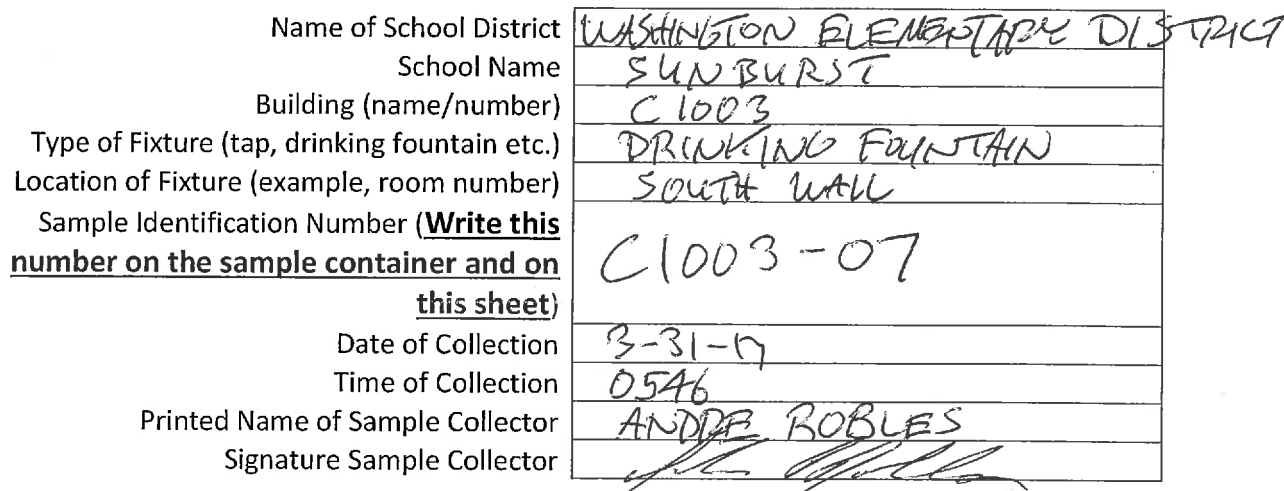 Name of School District WASHINGTON ELEMENTARY DISTRICT
School Name SUNBURST
Building (name/number) C1003
Type of Fixture (tap, drinking fountain etc.) DRINKING FOUNTAIN
Location of Fixture (example, room number) SOUTH WALL
Sample Identification Number (Write this
number on the sample container and on C1003-07
this sheet)
Date of Collection 3-31-17
Time of Collection 0546
Printed Name of Sample Collector ANDRE ROBLES
Signature Sample Collector